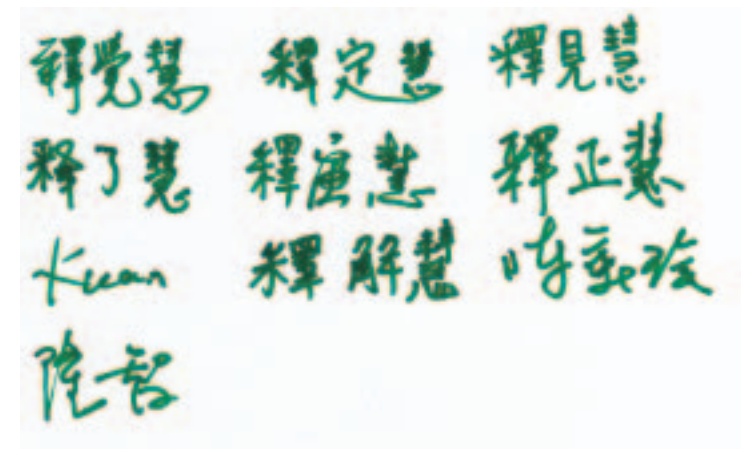 釋覺慧 釋定慧 釋見慧
释了慧 釋演慧 釋正慧
Kuan 釋解慧
隆智